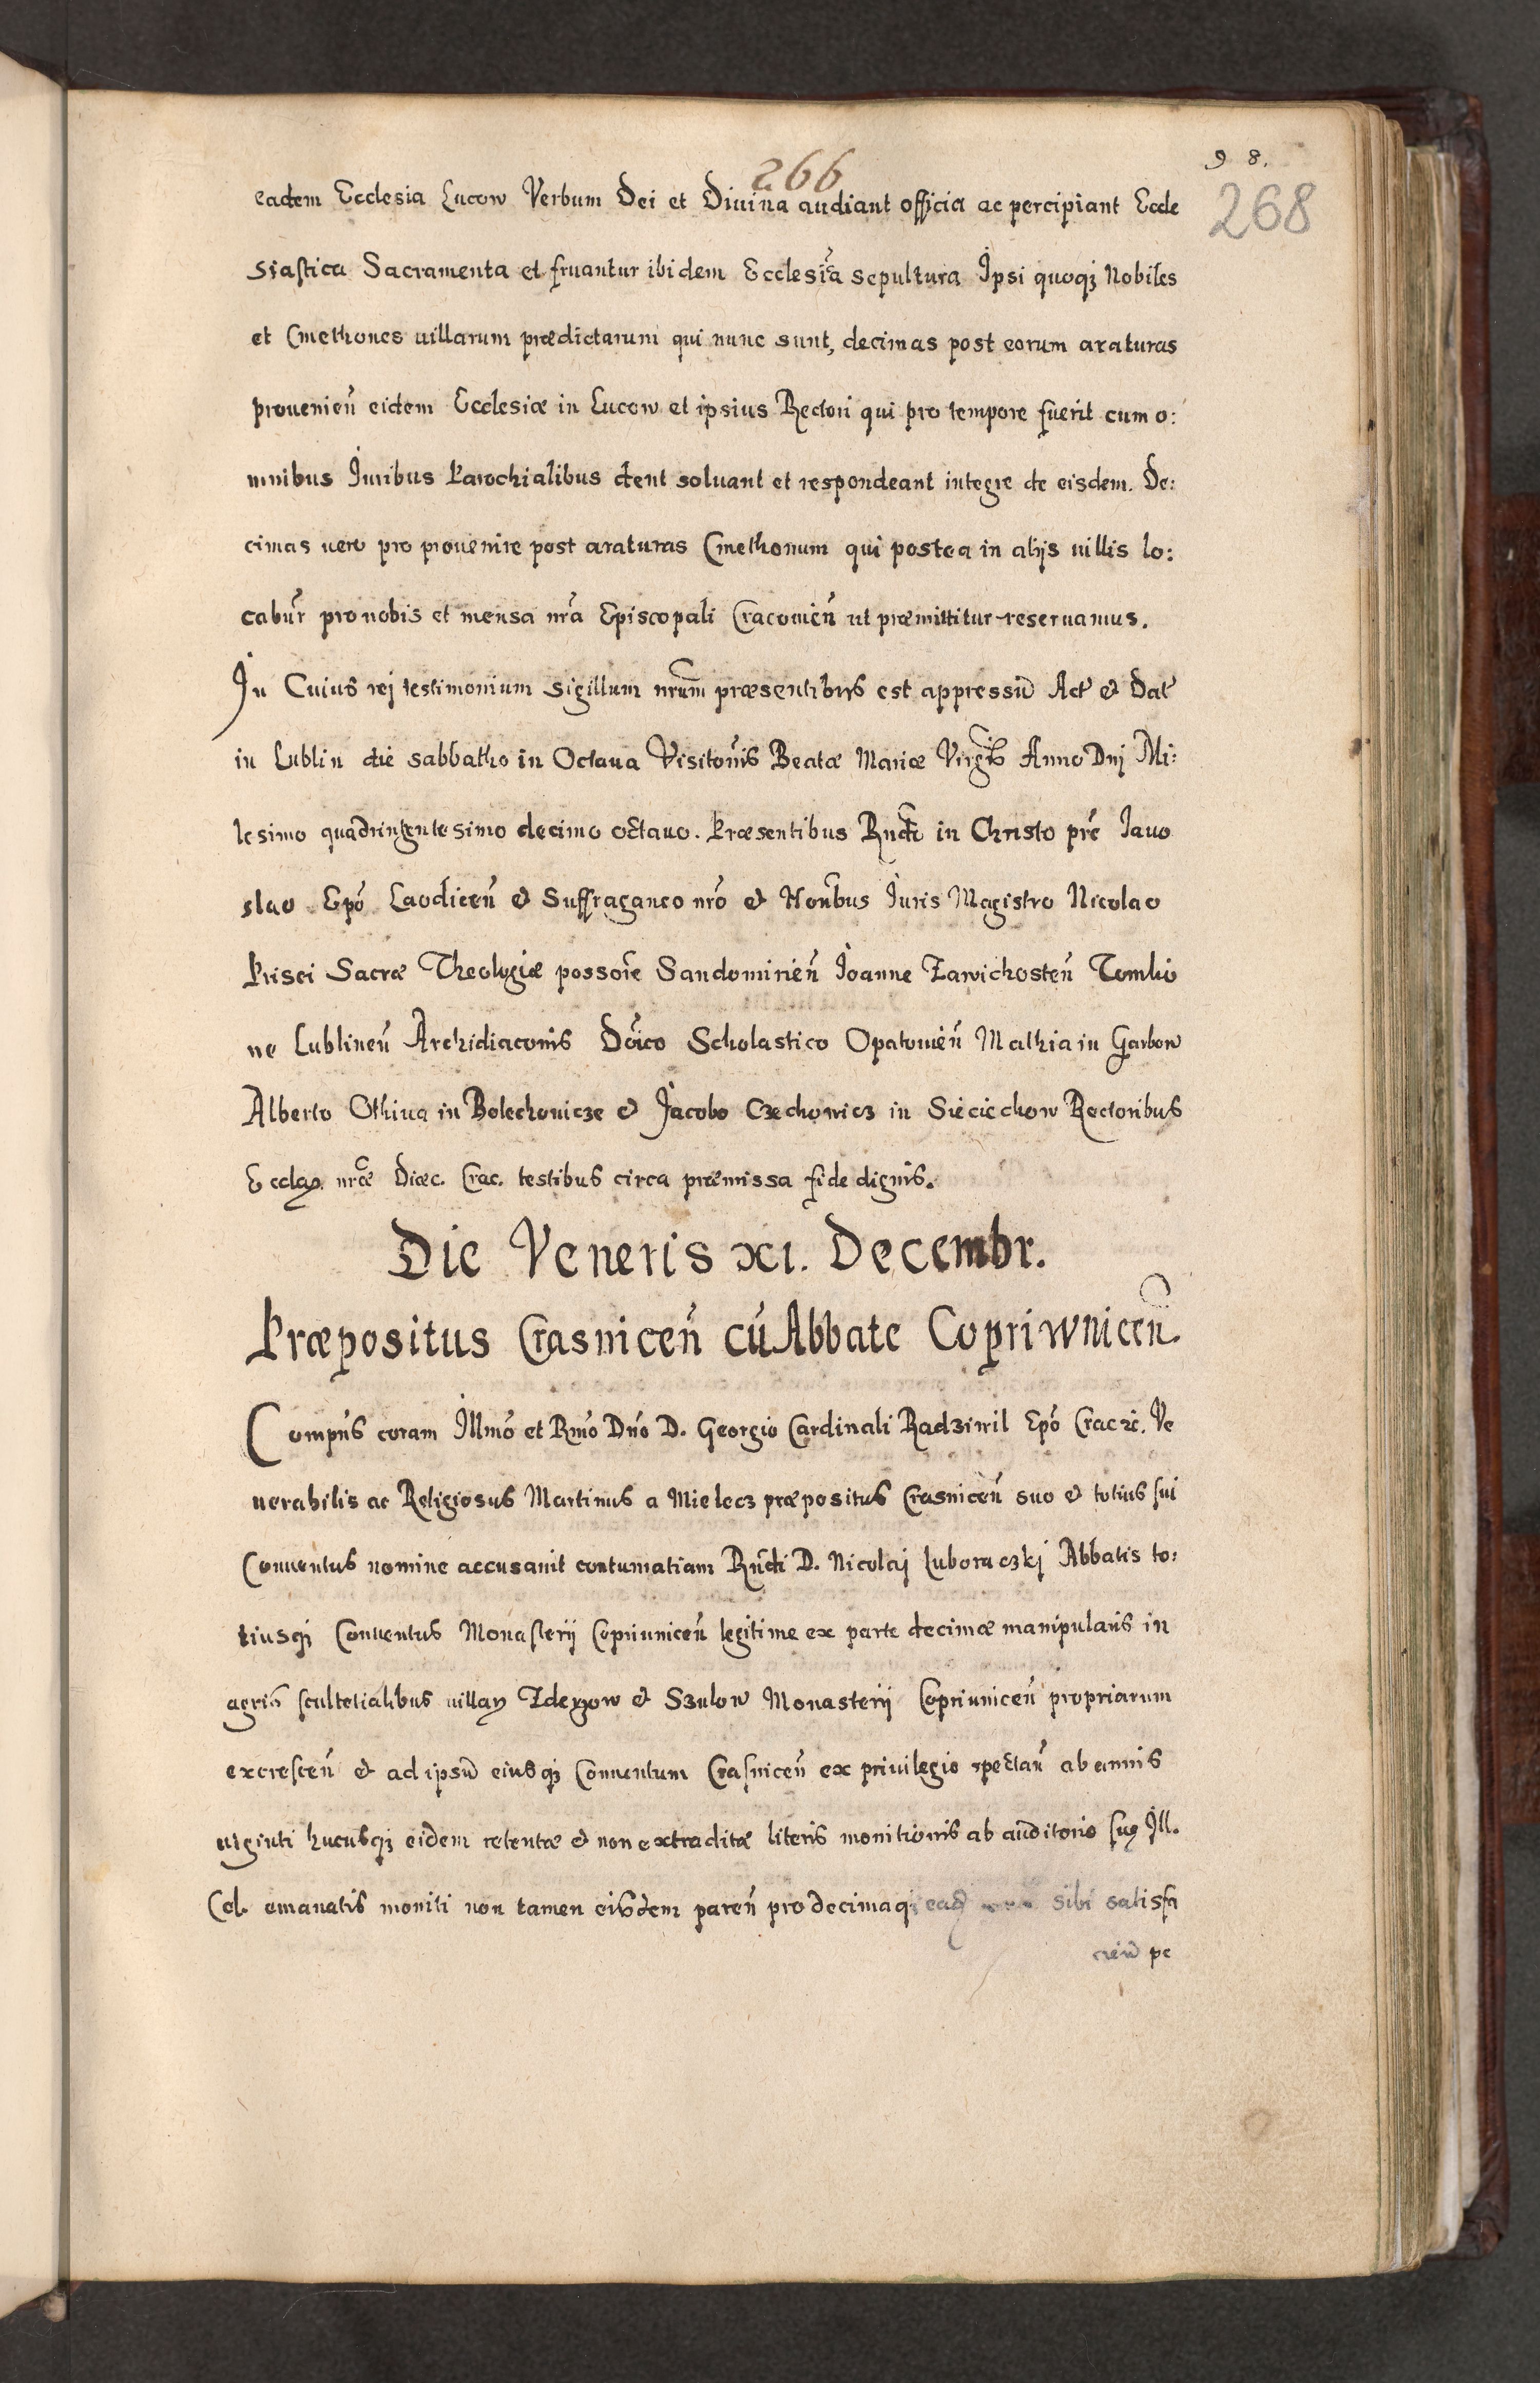 266
9 8.
268
eadem Ecclesia Lucow Verbum Dei et Diuina audiant officia ac percipiant Eccle
siastica Sacramenta et fruantur ibidem Ecclesiãca sepultura Ipsi quoqꝫ Nobiles
et Cmethones uillarum prædictarum qui nunc sunt, decimas post eorum araturas
prouenieñ eidem Ecclesiæ in Lucow et ipsius Rectori qui pro tempore fuerit cum o:
mnibus Iuribus Parochialibus dent soluant et respondeant integre de eisdem. De:
cimas uero pro prouenire post araturas Cmethonum qui postea in alijs uillis lo:
cabũr pro nobis et mensa nrã Episcopali Cracouieñ ut præmittitur reseruamus.
In Cuius rej testimonium sigillum nrũm præsentibus est appressũ Act̃ et Dat̃
in Lublin die sabbatho in Octaua Visitoñis Beatæ Mariæ Virgĩs Anno Dnj Mi:
lesimo quadringentesimo decimo octauo. Præsentibus Rndõ in Christo prẽ Iaro
slao Epõ Laodiceñ et Suffraganeo nrõ et Honr̃bus Iuris Magistro Nicolao
Prisci Sacræ Theologiæ possorẽ Sandomirieñ Ioanne Zawichosteñ Tomko
ne Lublineñ Archidiaconis Dõico Scholastico Opatouieñ Mathia in Garbow
Alberto Othiua in Bolechouicze et Jacobo Czechowicz in Sieciechow Rectoribus
Ecclaꝝ nrãe Diæc. Crac. testibus circa præmissa fide dignis.
Die Veneris xi. Decembr.
Præpositus Crasniceñ cũ Abbate Copriwniceñ.
Compñs coram Illmõ et Rmõ Dnõ D. Georgio Cardinali Radziwil Epõ Crac ⁊c̃. Ve
nerabilis ac Religiosus Martinus a Mielecz præpositus Crasniceñ suo et totius sui
Conuentus nomine accusauit contumatiam Rndi D. Nicolaj Luboraczkj Abbatis to:
tiusqꝫ Conuentus Monasterij Copriuniceñ legitime ex parte decimæ manipularis in
agris scultetialibus uillaꝝ Zderzow et Szulow Monasterij Copriuniceñ propriarum
excresceñ et ad ipsũ eiusqꝫ Conuentum Crasniceñ ex priuilegio spectañ ab annis
uiginti hucusqꝫ eidem retentæ et non extraditæ literis monitionis ab auditorio suę Ill.
Cel. emanatis moniti non tamen eisdem pareñ pro decimaqꝫ sibi satisfa
cieñ pe